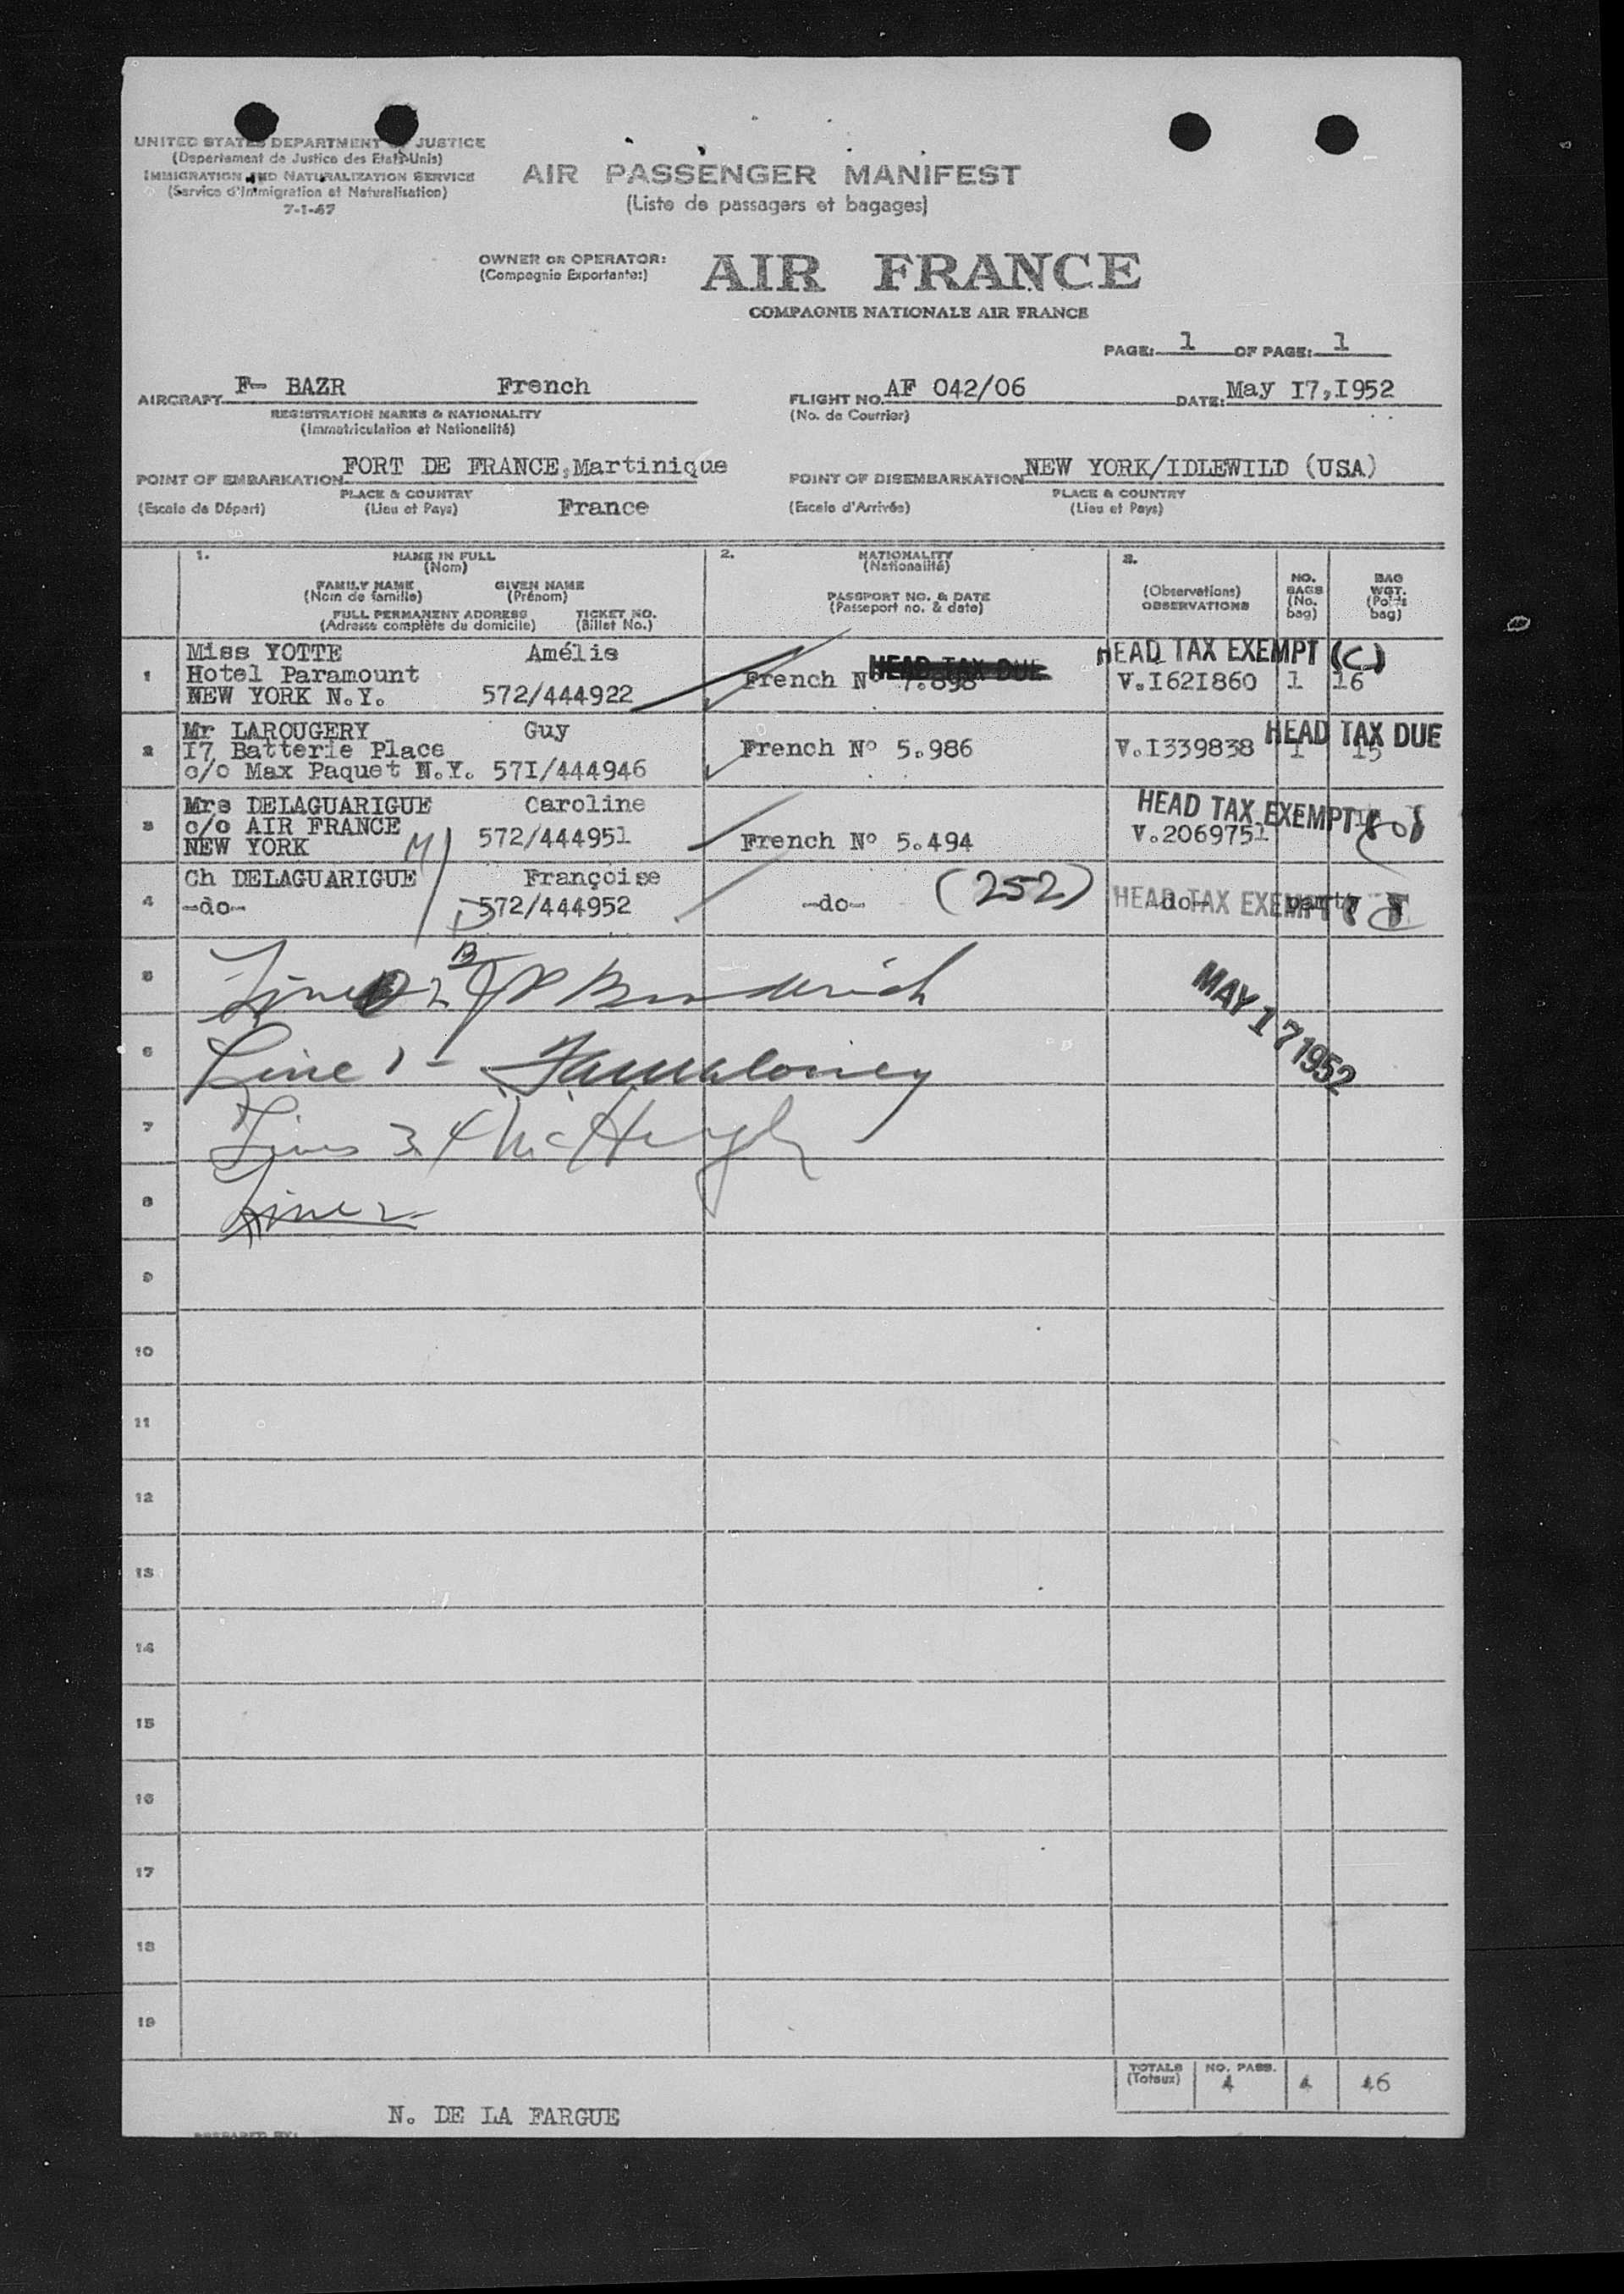 UNITED STATES DEPARTMENT OF JUSTICE
(Departement de Justice des Etats-Unis)
IMMIGRATION AND NATURALIZATION SERVICE
(Service d'Immigration et Naturalisation)
7-1-47
AIR PASSENGER MANIFEST
(Liste de passagers et bagages)
OWNER OR OPERATOR:
(Compagnie Exportante:)
AIR FRANCE
COMPAGNIE NATIONALE AIR FRANCE
PAGE: 1 OF PAGE: 1
AIRCRAFT F- BAZR French
REGISTRATION MARKS & NATIONALITY
(Immatriculation et Nationalité)
FLIGHT NO. AF 042/06
(No. de Courrier)
DATE: May I7,I952
POINT OF EMBARKATION FORT DE FRANCE,Martinique
PLACE & COUNTRY
(Escale de Départ) (Lieu et Pays) France
POINT OF DISEMBARKATION NEW YORK/IDLEWILD (USA)
PLACE & COUNTRY
(Escale d'Arrivée) (Lieu et Pays)
1. NAME IN FULL
(Nom)
FAMILY NAME GIVEN NAME
(Nom de famille) (Prénom)
FULL PERMANENT ADDRESS TICKET NO.
(Adresse complète du domicile) (Billet No.)
2. NATIONALITY
(Nationalité)
PASSPORT NO. & DATE
(Passeport no. & date)
3.
(Observations)
OBSERVATIONS
NO.
BAGS
(No.
bag)
BAG
WGT.
(Poids
bag)
1
Miss YOTTE Amélie
Hotel Paramount
NEW YORK N.Y. 572/444922
HEAD TAX DUE
French N° 7.898
HEAD TAX EXEMPT (C)
V.I62I860 1 16
2
Mr LAROUGERY Guy
I7 Batterie Place
c/o Max Paquet N.Y. 57I/444946
French N° 5.986
HEAD TAX DUE
V.I339838 1 15
3
Mrs DELAGUARIGUE Caroline
c/o AIR FRANCE
NEW YORK 572/444951
French N° 5.494
HEAD TAX EXEMPT
V.2069751
4
Ch DELAGUARIGUE Françoise
-do- 572/444952
-do- (252)
HEAD TAX EXEMPT
-do-
5
Line 2
MAY 17 1952
6
Line 1 -
7
Lines 3 4 McHugh
8
Line 2
9
10
11
12
13
14
15
16
17
18
19
TOTALS
(Totaux)
NO. PASS.
4 4 46
N. DE LA FARGUE
PREPARED BY: